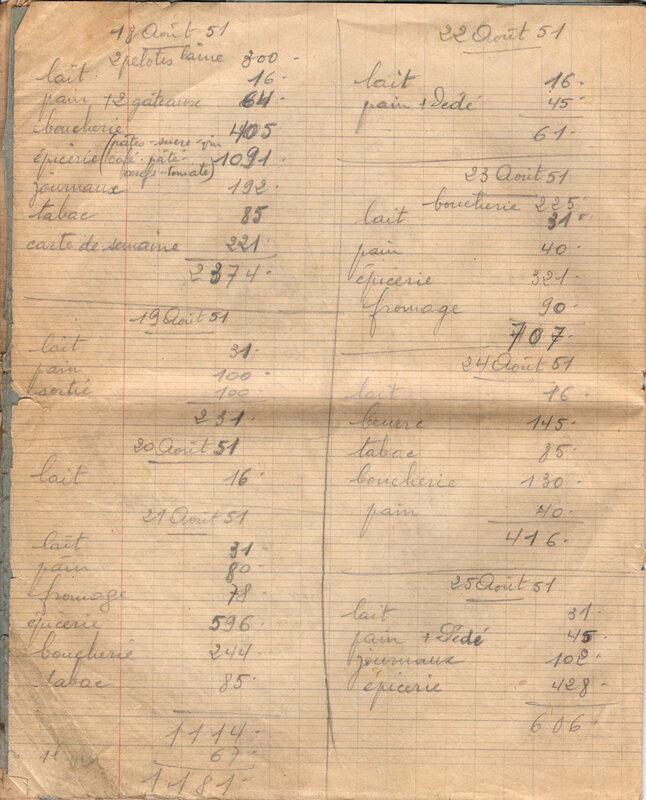 18 Août 51
2 pelotes laine 300
lait 16
pain + 2 gâteaux 64
boucherie 405
épicerie (pâtes - sucre - vin 1091
café - pâté
oeufs - tomate)
journaux 192
tabac 85
carte de semaine 221
2374
19 Août 51
lait 31
pain 100
sortie 100
231
20 Août 51
lait 16
21 Août 51
lait 31
pain 80
fromage 78
épicerie 596
boucherie 244
tabac 85
1114
1l vin 67
1181
22 Août 51
lait 16
pain + Dédé 45
61
23 Août 51
boucherie 225
lait 31
pain 40
épicerie 321
fromage 90
707
24 Août 51
lait 16
beurre 145
tabac 85
boucherie 130
pain 40
416
25 Août 51
lait 31
pain + Dédé 45
journaux 102
épicerie 428
606